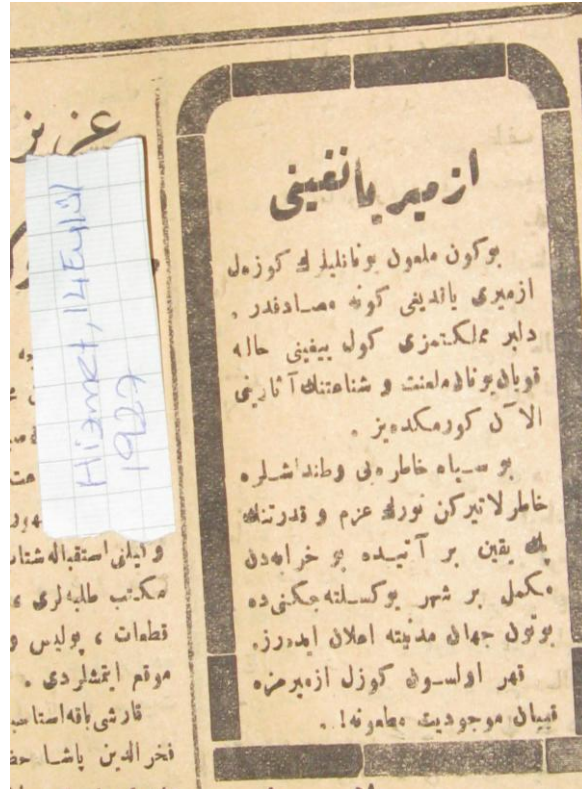 ازمیر یانغینی
بوكون ملعون یونانلیلرك كوزەل
ازمیری یاقدیغی كونه مصادفدر .
دلبر مملكتمزی كول ییغینی حاله
قویان یونان ملعنت و شناعتنك آثارینی
الآن كورمكده‌یز .
بو سیاه خاطره‌یی وطنداشلره
خاطرلاتیركن تورك عزم و قدرتنك
پك یقین بر آتیده بو خرابه‌دن
مكمل بر شهر یوكسلته‌جكنی ده
بوتون جهان مدنیته اعلان ایده‌رز.
قهر اولسون كوزل ازمیرمزه
قییان موجودیت مطعونه ! .
عزیز
Hizmet, 14 Eylül
1927
و فیلی استقباله شتاب
مكتب طلبه‌لری ،
قطعات ، پولیس و
موقع ایتمشلردی .
قارشی یاقه استا
فخرالدین پاشا حض